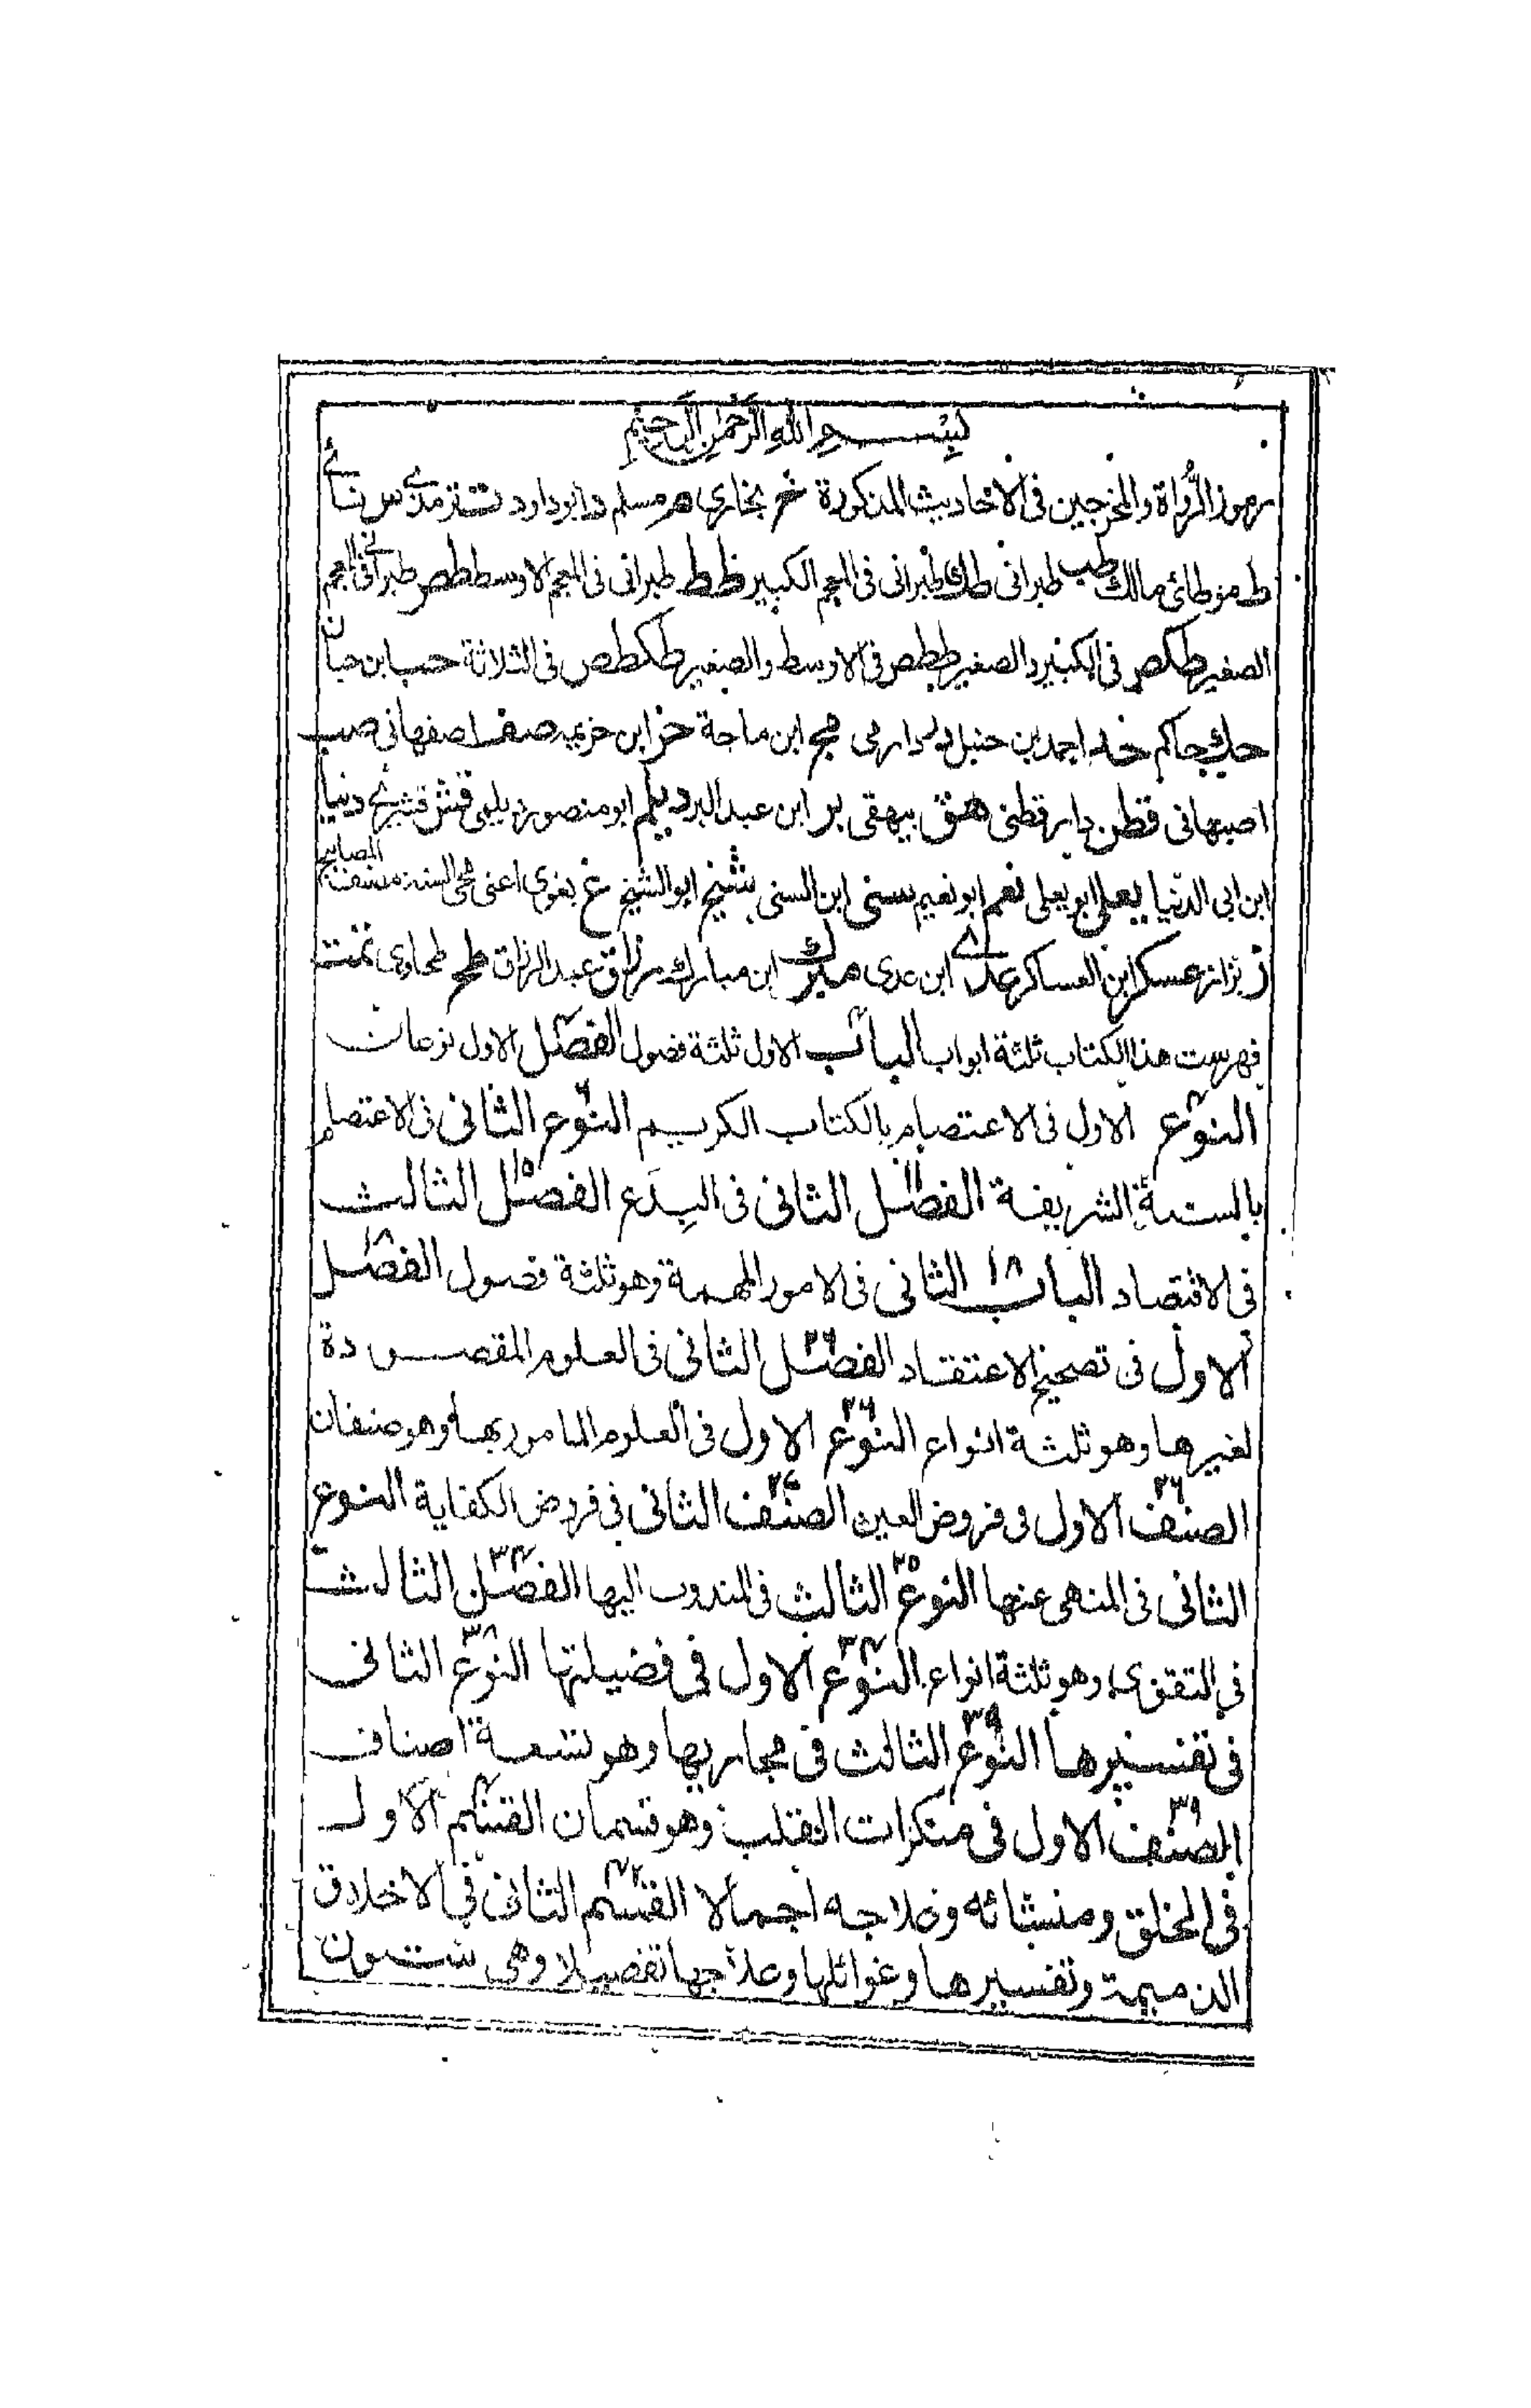 بسم الله الرحمن الرحيم
رموز الرُّواة والمخرجين فى الاحاديث المذكورة خم بخارى هر مسلم د ابوداود ت ترمذى س نسائے
ط موطائ مالك طب طبرانى طك طبرانى فى المعجم الكبير طط طبرانى فى المعجم الاوسط طص طبرانى فى المعجم
الصغير طكص فى الكبير والصغير ططص فى الاوسط والصغير طكطص فى الثلاثة حب ابن حبان
حك حاكم حد احمد بن حنبل دارمى مج ابن ماجة خز ابن خزيمه صف اصفهانى صب
اصبهانى قطن دارقطنى هق بيهقى بر ابن عبد البر ديلم ابو منصور ديلمى قش قشيرى دنيا
ابن ابى الدنيا يعلى ابو يعلى نعم ابو نعيم سنى ابن السنى شيخ ابو الشيخ غ بغوى اعنى محى السنة مصنف المصابيح
ز بزاز عسكر ابن العساكر عدے ابن عدى مبرك ابن مبارك رزاق عبد الرزاق طح طحاوى تمت
فهرست هذا الكتاب ثلثة ابواب الباب الاول ثلثة فصول الفصل الاول نوعان
النوع ۸ الاول فى الاعتصام بالكتاب الكريم النوع الثانى فى الاعتصام
بالسنة الشريفة الفصل ۱۱ الثانى فى البِدَع الفصل ۱۵ الثالث
فى الاقتصاد الباب ۱۸ الثانى فى الامور المهمة وهو ثلثة فصول الفصل ۱۸
الاول فى تصحيح الاعتقاد الفصل ۲۶ الثانى فى العلوم المقصودة
لغيرها وهو ثلثة انواع النوع ۲۶ الاول فى العلوم المامور بها وهو صنفان
الصنف ۲۶ الاول فى فروض العين الصنف ۲۷ الثانى فى فروض الكفاية النوع
الثانى فى المنهى عنها النوع الثالث فى المندوب اليها الفصل ۳۴ الثالث
فى التقوى وهو ثلثة انواع النوع ۳۴ الاول فى فضيلتها النوع ۳۸ الثانى
فى تفسيرها النوع ۳۹ الثالث فى مجاريها وهو تسعة اصناف
الصنف ۳۹ الاول فى منكرات القلب وهو قسمان القسم الاول
فى الخلق ومنشائه وعلاجه اجمالا القسم الثانى فى الاخلاق
الذميمة وتفسيرها وغوائلها وعلاجها تفصيلا وهى ستون